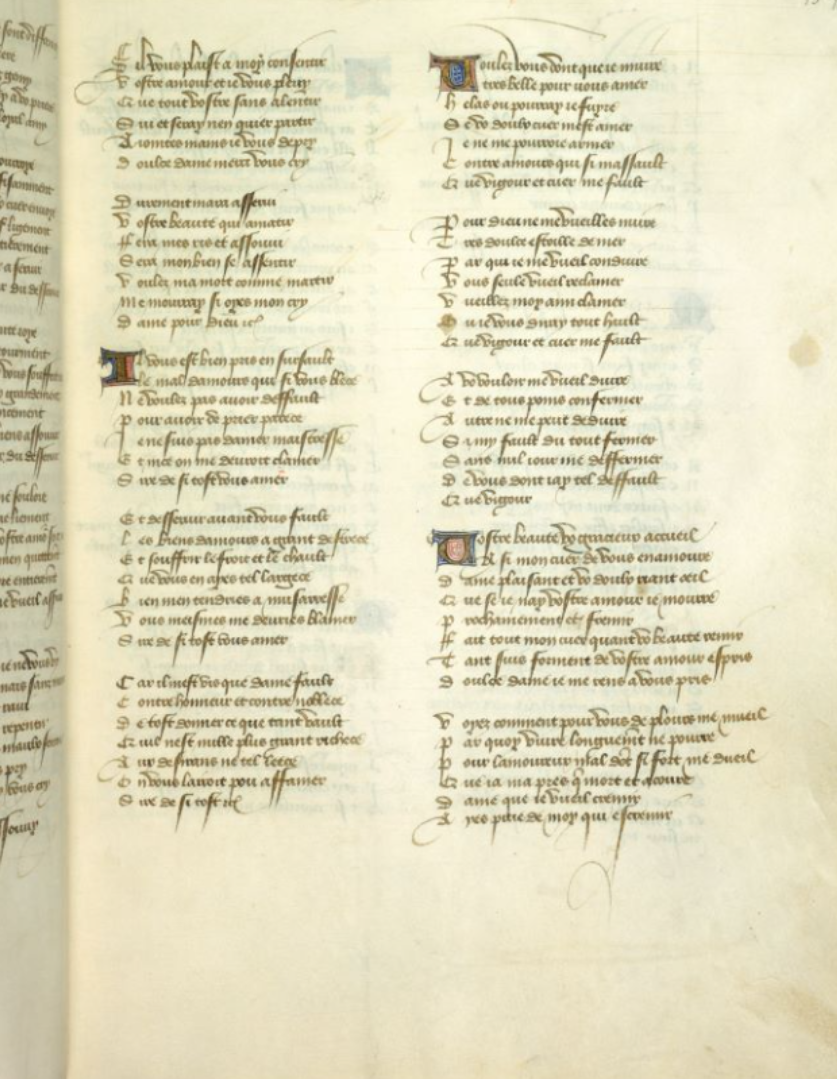 S il vous plaist a moy consentir
V ostre amour et ie vous plevy
Que tout vostre sans alentir
S ui et seray nen quier partir
A iointes mains ie vous depry
D oulce dame mercy vous cry
D urement mara asseruy
V ostre beaute qui amatir
F era mes ris et assouuir
S era mon bien se assentir
V oulez ma mort comme martir
Me mourray si oyes mon cry
D ame pour dieu ic
Il vous est bien pris en sursault
le mal damours qui si vous blece
N e voulez pas auoir deffault
P our auoir de prier parece
I e ne suis pas damer maistresse
E t nice on me deuroit clamer
S ire de si tost vous amer
E t desseruir auant vous fault
L es biens damours a grant destrece
E t souffrir le froit et le chault
Que vous en ayes tel largece
B ien men tendries a musarresse
V ous meismes me deuries blamer
S ire de si tost vous amer
C ar il mest vis que dame fault
C ontre honneur et contre noblece
D e tost donner ce que tant vault
Que nest nulle plus grant richece
A ur desirans ne tel leece
O n vous lairoit pou affamer
S ire de si tost etc
Uoulez vous dont que ie muire
tres belle pour vous amer
H elas ou pourray ie fuyre
S e vo doulx cuer mest amer
I e ne me pourroie armer
C ontre amours qui si massault
Que vigour et cuer me fault
P our dieu ne me vueilles nuire
T res doulce estoille de mer
P ar qui ie me vueil conduire
V ous seule vueil reclamer
V ueillez moy ami clamer
O u ie vous diray tout hault
Que vigour et cuer me fault
A vo vouloir me vueil duire
E t de tous poins confermer
A utre ne me peut deduire
S i my fault du tout fermer
S ans nul iour me deffermer
D e vous dont iay tel deffault
Que vigour
Uostre beaute vo gracieux accueil
A si mon cuer de vous enamoure
D ame plaisant et vo doulx riant oeil
Que se ie nay vostre amour ie mourre
P rochainement et fremir
F ait tout mon cuer quant vo beaute remir
T ant suis forment de vostre amour espris
D oulce dame ie me rens a vous pris
V oyez comment pour vous de plours me mueil
P ar quoy viure longuement ne pourre
P our lamoureux mal dont si fort me dueil
Que ia ma pres que mort et acoure
D ame que ie vueil cremir
A yes pitie de moy qui